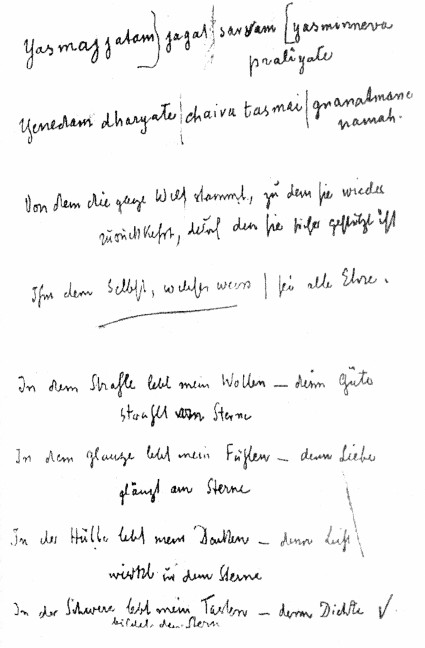 Yasmajjatam} jagat | sarvam [yasminneva
praliyate
Yenedam dharyate | chaiva tasmai | gnanatmane
namah.
Von dem die ganze Welt stammt, zu dem sie wieder
zurückkehrt, durch den sie sicher gestützt ist
Ihm dem Selbst, welches weiss | sei alle Ehre.
In dem Strahle lebt mein Wollen – denn Güte
strahlt Sterne
In dem Glanze lebt mein Fühlen – denn Liebe
glänzt am Sterne
In der Hülle lebt mein Denken – denn Luft
wirkt in dem Sterne
In der Schwere lebt mein Tasten – denn Dichte ✓.
bildet den Stern